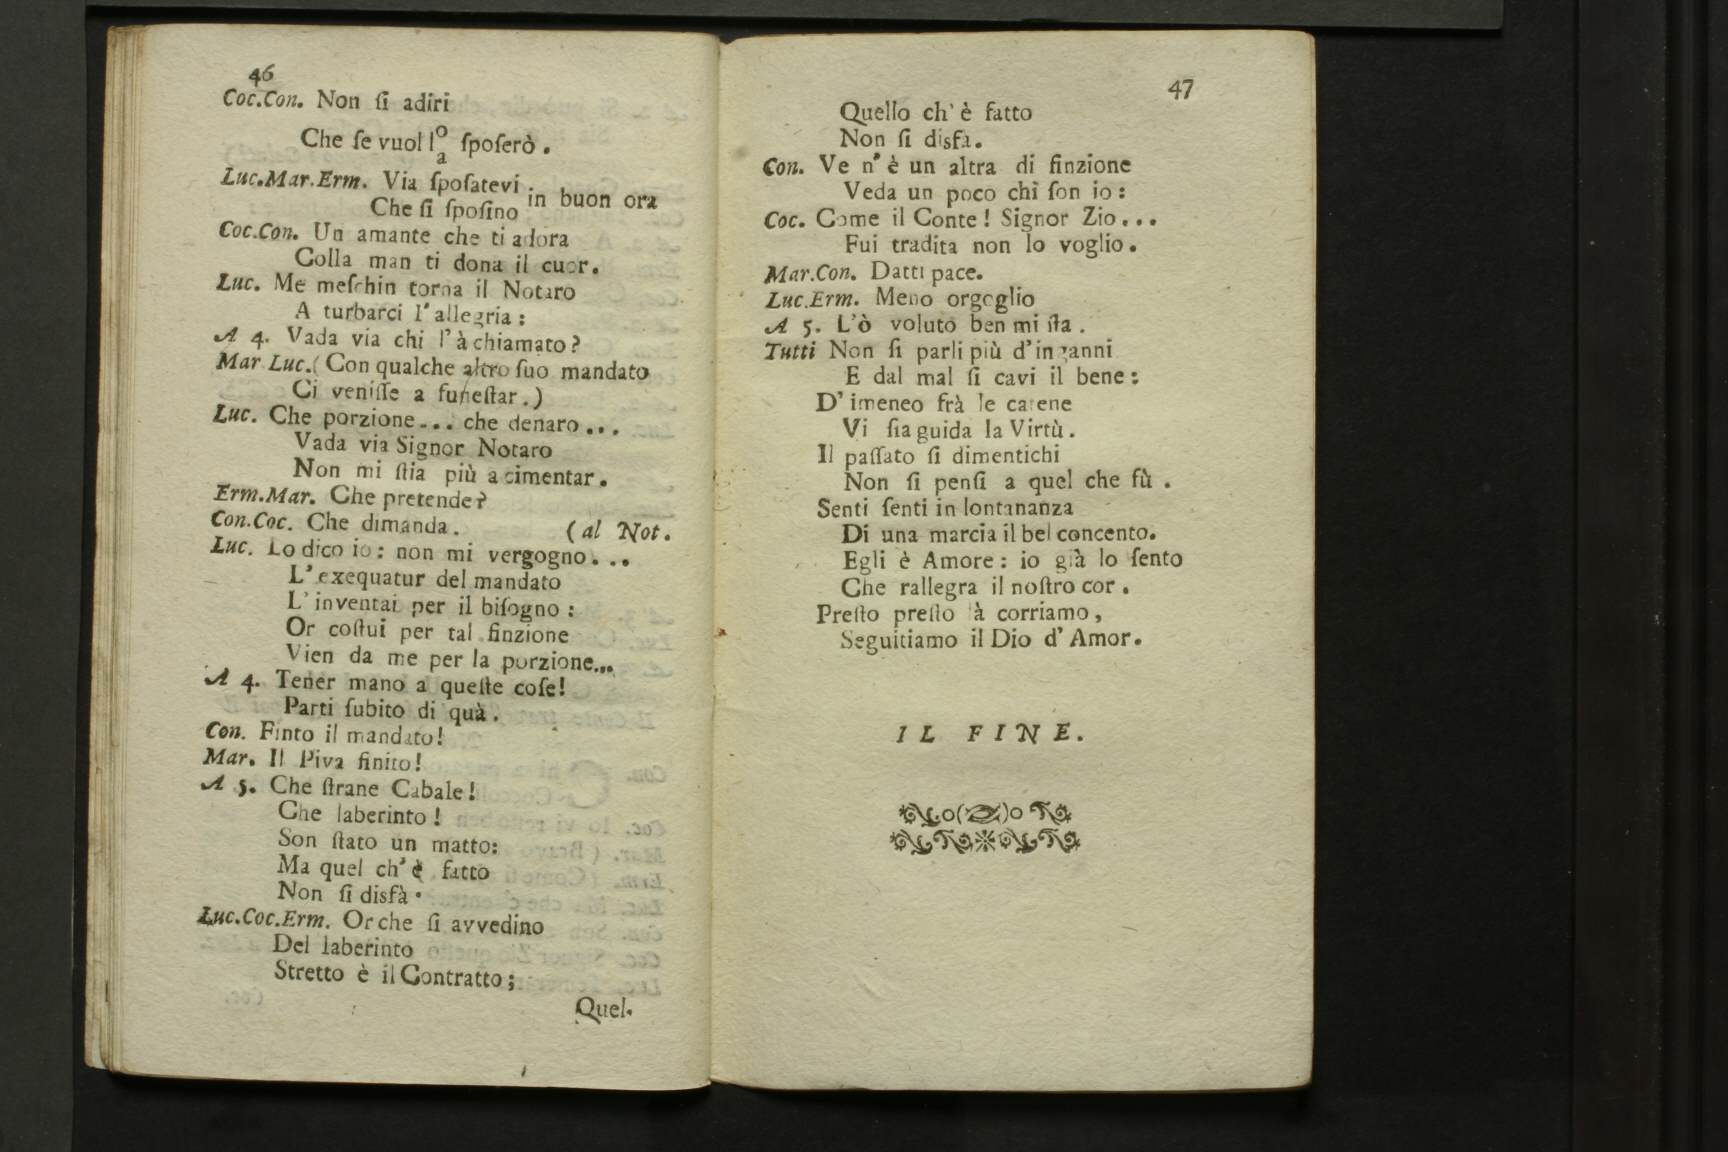 46
Coc.Con. Non ſi adiri
Che ſe vuol l o/a ſpoſerò.
Luc.Mar.Erm. Via ſpoſatevi
in buon ora
Che ſi ſpoſino
Coc.Con. Un amante che ti adora
Colla man ti dona il cuor.
Luc. Me meſchin torna il Notaro
A turbarci l'allegria:
A 4. Vada via chi l'à chiamato?
Mar Luc. (Con qualche altro ſuo mandato
Ci veniſſe a funeſtar.)
Luc. Che porzione... che denaro...
Vada via Signor Notaro
Non mi ſtia più a cimentar.
Erm.Mar. Che pretende?
Con.Coc. Che dimanda. (al Not.
Luc. Lo dico io: non mi vergogno...
L'exequatur del mandato
L'inventai per il biſogno:
Or coſtui per tal finzione
Vien da me per la porzione...
A 4. Tener mano a queſte coſe!
Parti ſubito di quà.
Con. Finto il mandato!
Mar. Il Piva finito!
A 5. Che ſtrane Cabale!
Che laberinto!
Son ſtato un matto:
Ma quel ch'è fatto
Non ſi disfà.
Luc.Coc.Erm. Or che ſi avvedino
Del laberinto
Stretto è il Contratto;
Quel.
47
Quello ch'è fatto
Non ſi disfà.
Con. Ve n'è un altra di finzione
Veda un poco chi ſon io:
Coc. Come il Conte! Signor Zio...
Fui tradita non lo voglio.
Mar.Con. Datti pace.
Luc.Erm. Meno orgoglio
A 5. L'ò voluto ben mi ſta.
Tutti Non ſi parli più d'inganni
E dal mal ſi cavi il bene:
D'imeneo frà le catene
Vi ſia guida la Virtù.
Il paſſato ſi dimentichi
Non ſi penſi a quel che fù.
Senti ſenti in lontananza
Di una marcia il bel concento.
Egli è Amore: io già lo ſento
Che rallegra il noſtro cor.
Preſto preſto à corriamo,
Seguitiamo il Dio d'Amor.
IL FINE.